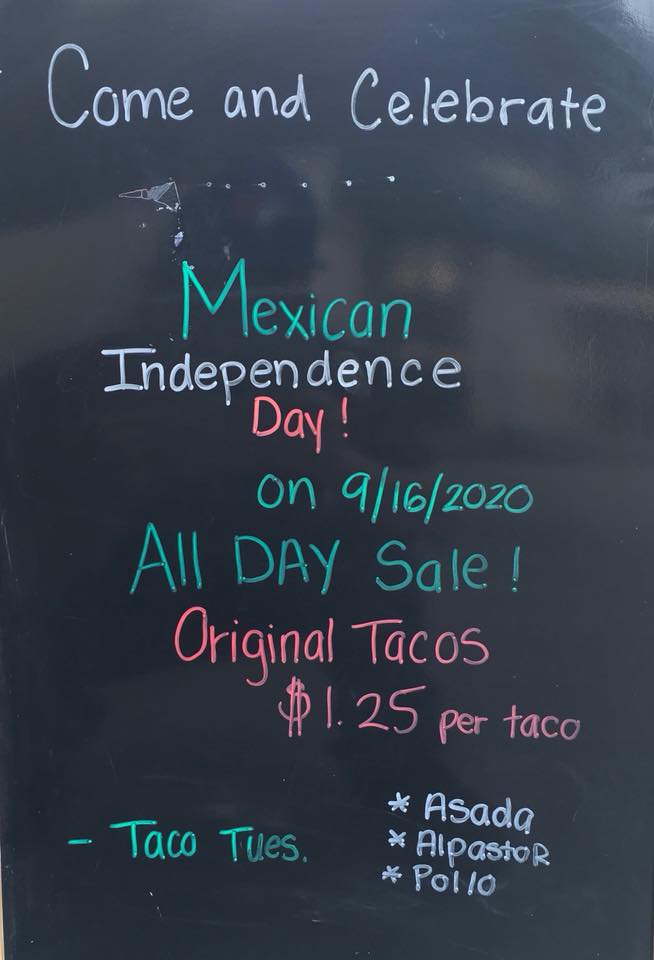 Come and Celebrate
Mexican
Independence
Day!
on 9/16/2020
All DAY Sale!
Original Tacos
$1.25 per taco
- Taco Tues.
* Asada
* AlpastoR
* Pollo